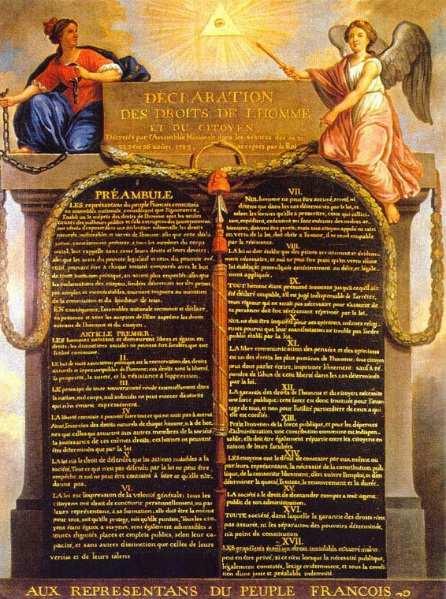 DÉCLARATION
DES DROITS DE L'HOMME
ET DU CITOYEN
Décrétés par l'Assemblée Nationale dans les séances des 20, 21
23, 24 et 26 août 1789, acceptés par le Roi
PRÉAMBULE
LES représentans du peuple François, constitués
en assemblée nationale, considérant que l'ignorance,
l'oubli ou le mépris des droits de l'homme sont les seules
causes des malheurs publics et de la corruption des gouvernemens
ont résolu d'exposer dans une déclaration solemnelle, les droits
naturels, inaliénables et sacrés de l'homme; afin que cette décla-
ration, constamment présente à tous les membres du corps
social, leur rappelle sans cesse leurs droits et leurs devoirs;
afin que les actes du pouvoir législatif et ceux du pouvoir exé-
cutif, pouvant être à chaque instant comparés avec le but
de toute institution politique, en soient plus respectés; afin que
les réclamations des citoyens, fondées désormais sur des princi-
pes simples et incontestables, tournent toujours au maintien
de la constitution et du bonheur de tous.
EN conséquence, l'assemblée nationale reconnoit et déclare,
en présence et sous les auspices de l'Être suprême les droits
suivans de l'homme et du citoyen.
ARTICLE PREMIER.
LES hommes naissent et demeurent libres et égaux en
droits; les distinctions sociales ne peuvent être fondées que sur
l'utilité commune.
II.
LE but de toute association politique est la conservation des droits
naturels et imprescriptibles de l'homme; ces droits sont la liberté,
la propriété, la sureté, et la résistance à l'oppression.
III.
LE principe de toute souveraineté réside essentiellement dans
la nation, nul corps, nul individu ne peut exercer d'autorité
qui n'en émane expressément.
IV.
LA liberté consiste à pouvoir faire tout ce qui ne nuit pas à autrui
Ainsi, l'exercice des droits naturels de chaque homme, n'a de bor-
nes que celles qui assurent aux autres membres de la société
la jouissance de ces mêmes droits; ces bornes ne peuvent
être déterminées que par la loi.
V.
LA loi n'a le droit de défendre que les actions nuisibles à la
société. Tout ce qui n'est pas défendu par la loi ne peut être
empêché, et nul ne peut être contraint à faire ce qu'elle n'or-
donne pas.
VI.
LA loi est l'expression de la volonté générale; tous les
citoyens ont droit de concourir personnellement, ou par
leurs représentans, à sa formation; elle doit être la même
pour tous, soit qu'elle protège, soit qu'elle punisse. Tous les cito-
yens étant égaux à ses yeux, sont également admissibles à
toutes dignités, places et emplois publics, selon leur capa-
cité, et sans autres distinctions que celles de leurs
vertus et de leurs talens.
VII.
NUL homme ne peut être accusé, arrêté, ni
détenu que dans les cas déterminés par la loi, et
selon les formes qu'elle a prescrites, ceux qui sollici-
tent, expédient, exécutent ou font exécuter des ordres ar-
bitraires, doivent être punis; mais tout citoyen appelé ou saisi
en vertu de la loi, doit obéir à l'instant, il se rend coupable
par la résistance.
VIII.
LA loi ne doit établir que des peines strictement et évidem-
ment nécessaires, et nul ne peut être puni qu'en vertu d'une
loi établie et promulguée antérieurement au délit, et légale-
ment appliquée.
IX.
TOUT homme étant présumé innocent jusqu'à ce qu'il ait
été déclaré coupable, s'il est jugé indispensable de l'arrêter,
toute rigueur qui ne serait pas nécessaire pour s'assurer de
sa personne doit être sévèrement réprimée par la loi.
NUL ne doit être inquiété pour ses opinions, mêmes religi-
euses pourvu que leur manifestation ne trouble pas l'ordre
public établi par la loi.
XI.
LA libre communication des pensées et des opinions
est un des droits les plus précieux de l'homme; tout citoyen
peut donc parler, écrire, imprimer librement; sauf à ré-
pondre de l'abus de cette liberté dans les cas déterminés
par la loi.
XII.
LA garantie des droits de l'homme et du citoyen nécessite
une force publique; cette force est donc instituée pour l'avan-
tage de tous, et non pour l'utilité particulière de ceux à qui
elle est confiée.
XIII.
Pour l'entretien de la force publique, et pour les dépenses
d'administration, une contribution commune est indispen-
sable; elle doit être également répartie entre les citoyens en
raison de leurs facultés.
XIV.
LES citoyens ont le droit de constater par eux mêmes ou
par leurs représentans, la nécessité de la contribution pub-
lique, de la consentir librement, d'en suivre l'emploi, et d'en
déterminer la quotité, l'assiette, le recouvrement et la durée.
XV.
LA société a le droit de demander compte à tout agent
public de son administration.
XVI.
TOUTE société, dans laquelle la garantie des droits n'est
pas assurée, ni la séparation des pouvoirs déterminée,
n'a point de constitution.
XVII.
LES propriétés étant un droit inviolable et sacré, nul ne
peut en être privé, si ce n'est lorsque la nécessité publique,
légalement constatée, l'exige évidemment, et sous la condi-
tion d'une juste et préalable indemnité.
AUX REPRESENTANS DU PEUPLE FRANCOIS